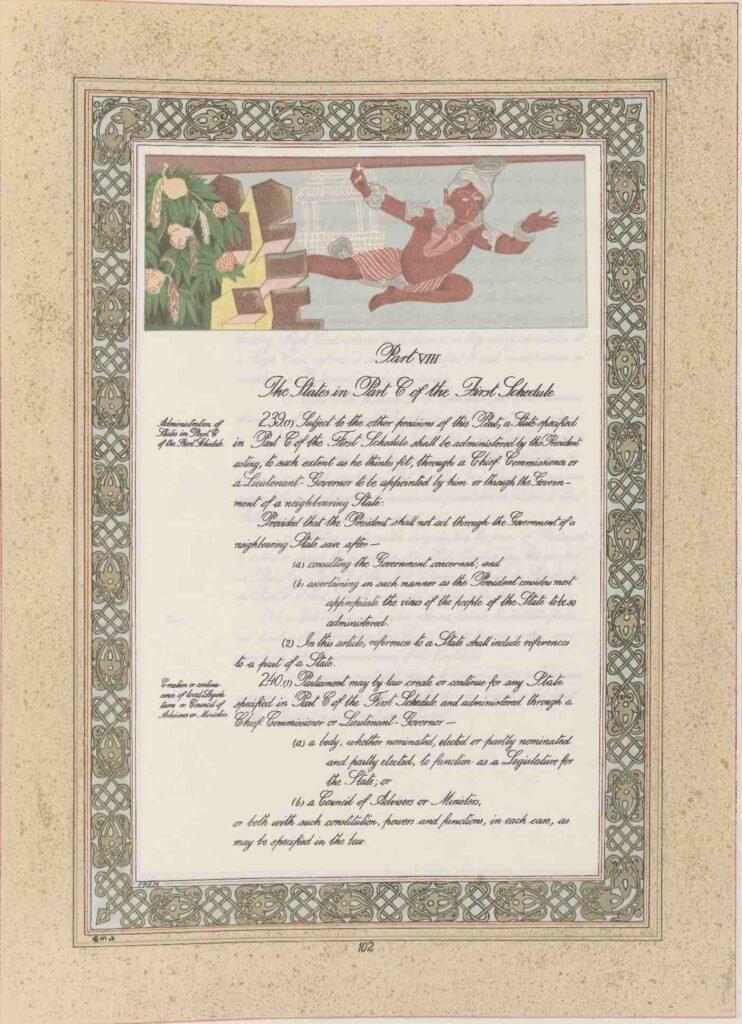 Part VIII
The States in Part C of the First Schedule
Administration of
States in Part C
of the First Schedule.
239.(1) Subject to the other provisions of this Part, a State specified
in Part C of the First Schedule shall be administered by the President
acting, to such extent as he thinks fit, through a Chief Commissioner or
a Lieutenant-Governor to be appointed by him or through the Govern-
ment of a neighbouring State:
Provided that the President shall not act through the Government of a
neighbouring State save after —
(a) consulting the Government concerned; and
(b) ascertaining in such manner as the President considers most
appropriate the views of the people of the State to be so
administered.
(2) In this article, references to a State shall include references
to a part of a State.
Creation or continu-
ance of local Legisla-
tures or Council of
Advisers or Ministers.
240.(1) Parliament may by law create or continue for any State
specified in Part C of the First Schedule and administered through a
Chief Commissioner or Lieutenant-Governor —
(a) a body, whether nominated, elected or partly nominated
and partly elected, to function as a Legislature for
the State; or
(b) a Council of Advisers or Ministers,
or both with such constitution, powers and functions, in each case, as
may be specified in the law.
PREM
102